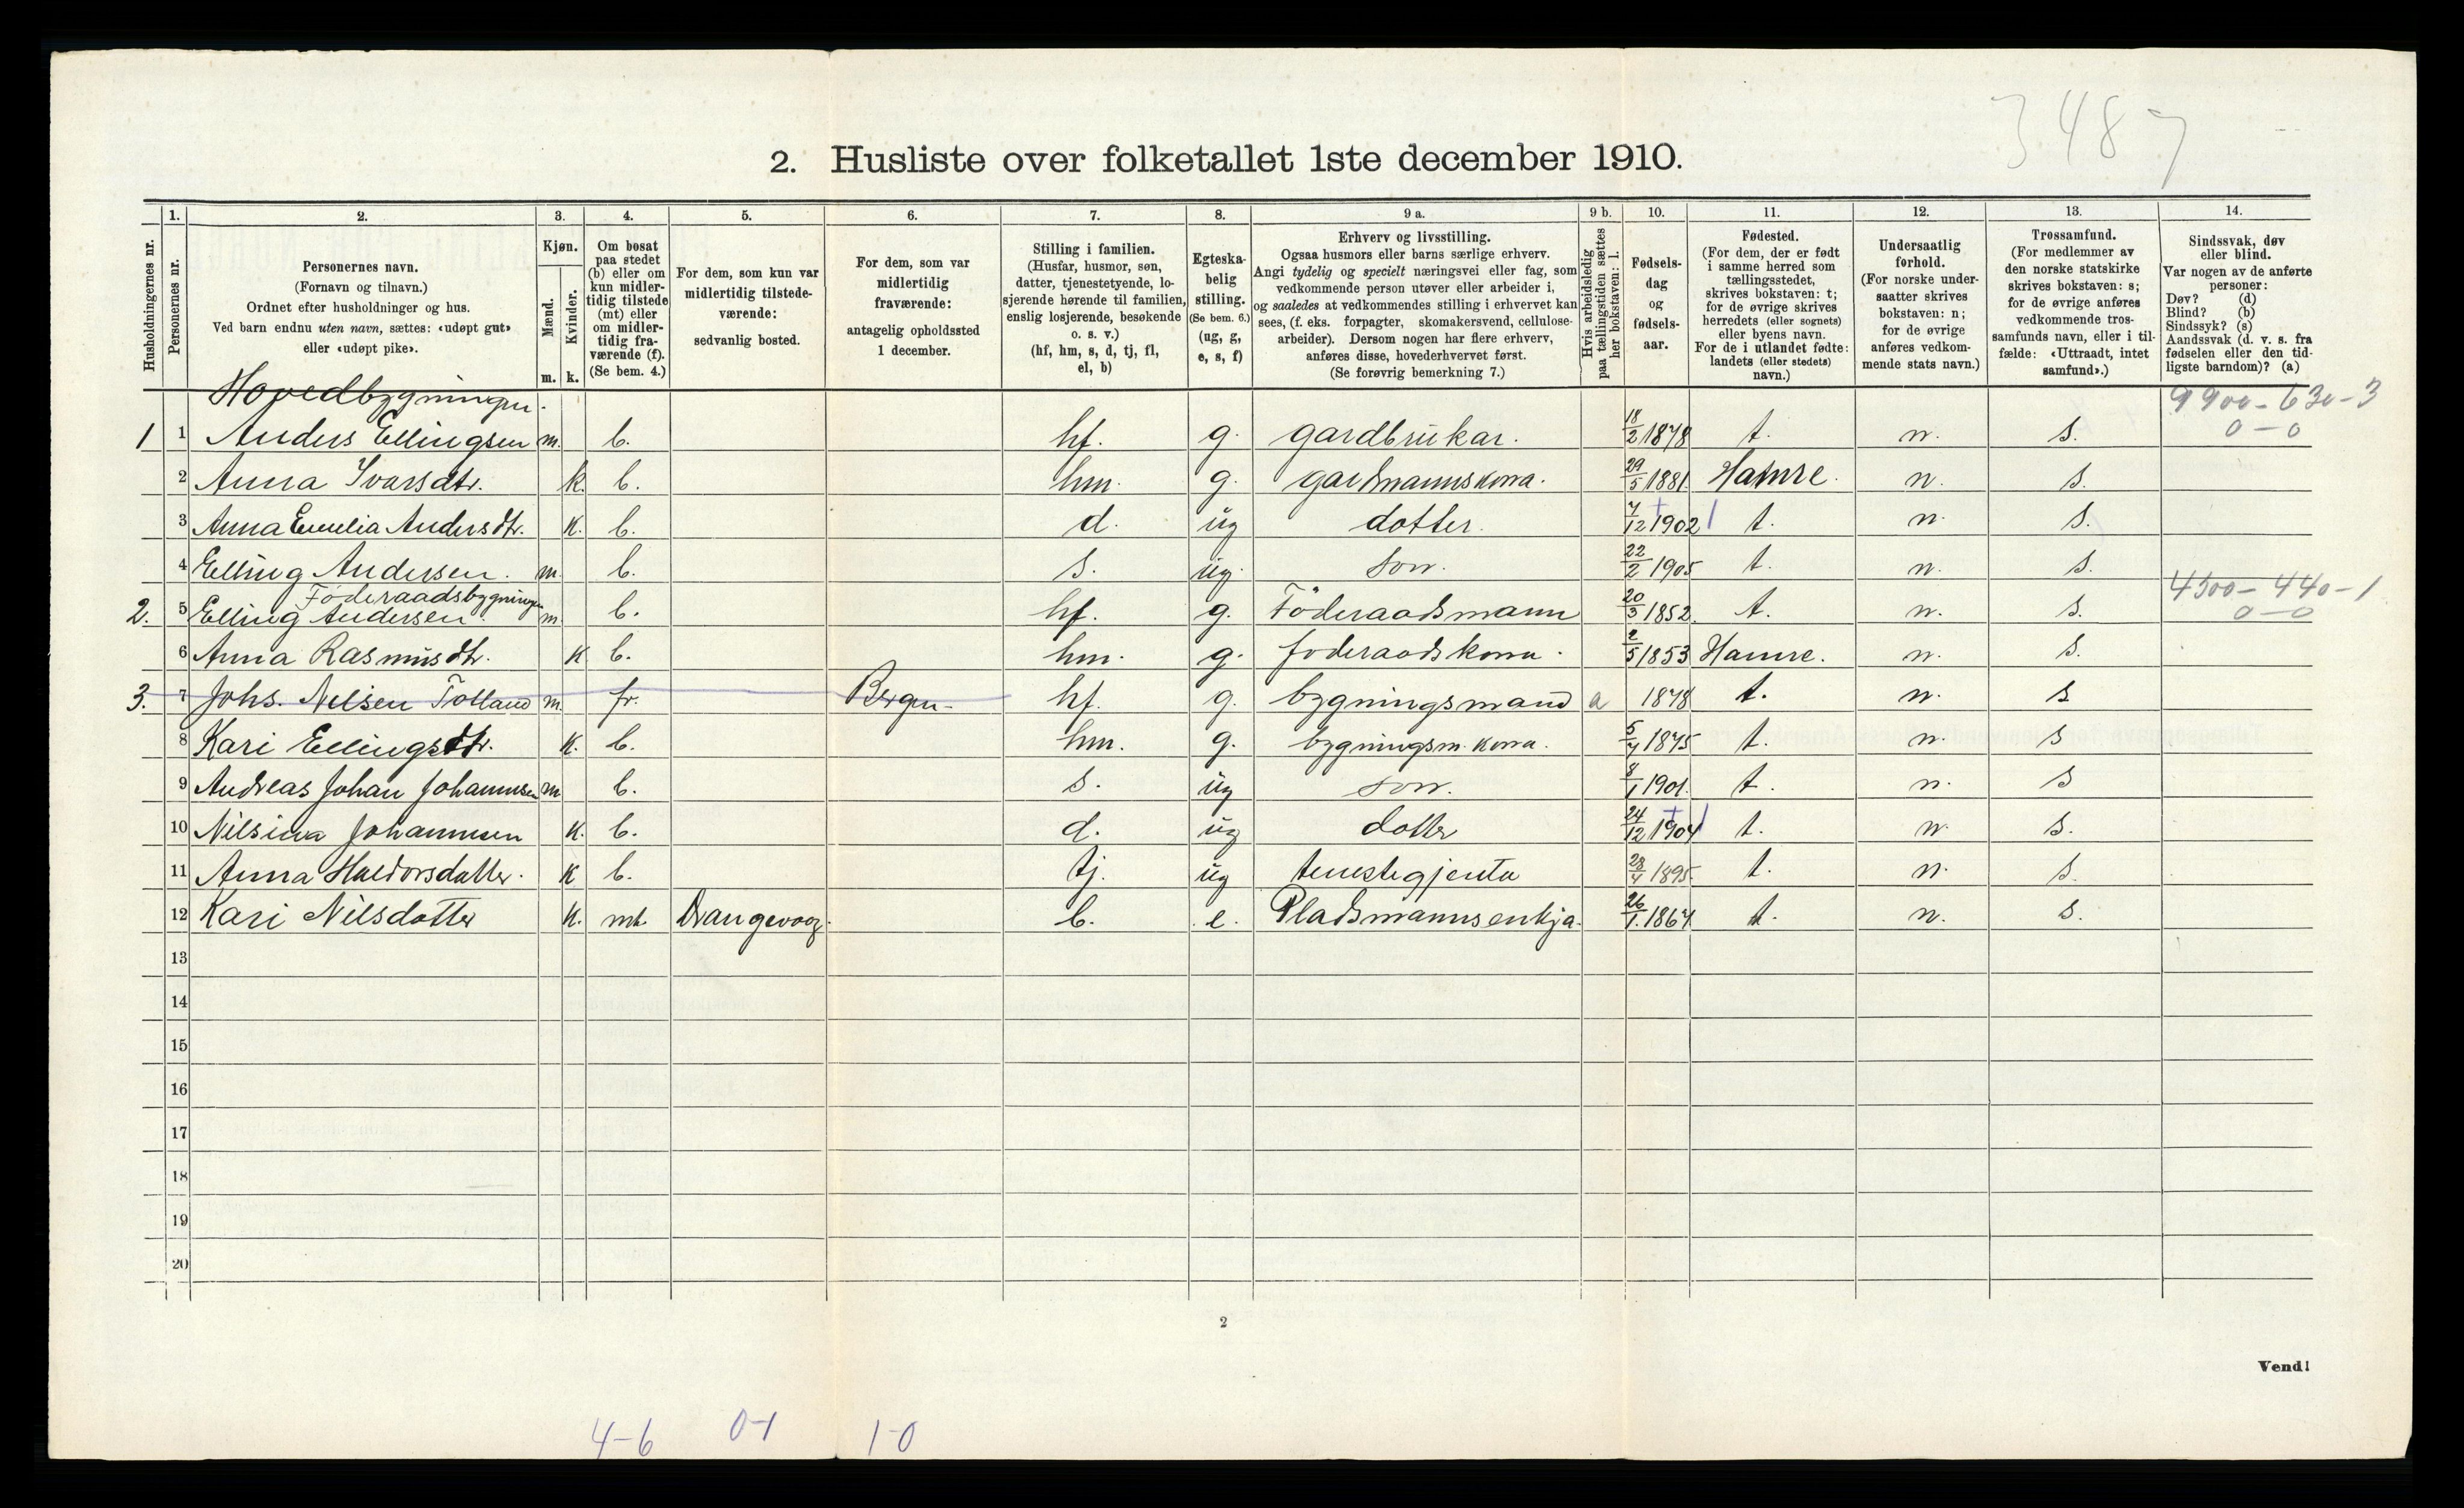 3487
2. Husliste over folketallet 1ste december 1910.
Husholdningernes nr.
1. Personernes nr.
2. Personernes navn. (Fornavn og tilnavn.) Ordnet efter husholdninger og hus. Ved barn endnu uten navn, sættes: «udøpt gut» eller «udøpt pike».
3. Kjøn. Mænd. m. Kvinder. k.
4. Om bosat paa stedet (b) eller om kun midlertidig tilstede (mt) eller om midlertidig fraværende (f). (Se bem. 4.)
5. For dem, som kun var midlertidig tilstedeværende: sedvanlig bosted.
6. For dem, som var midlertidig fraværende: antagelig opholdssted 1 december.
7. Stilling i familien. (Husfar, husmor, søn, datter, tjenestetyende, losjerende hørende til familien, enslig losjerende, besøkende o. s. v.) (hf, hm, s, d, tj, fl, el, b)
8. Egteskabelig stilling. (Se bem. 6.) (ug, g, e, s, f)
9 a. Erhverv og livsstilling. Ogsaa husmors eller barns særlige erhverv. Angi tydelig og specielt næringsvei eller fag, som vedkommende person utøver eller arbeider i, og saaledes at vedkommendes stilling i erhvervet kan sees, (f. eks. forpagter, skomakersvend, cellulosearbeider). Dersom nogen har flere erhverv, anføres disse, hovederhvervet først. (Se forøvrig bemerkning 7.)
9 b. Hvis arbeidsledig paa tællingstiden sættes her bokstaven: l.
10. Fødselsdag og fødselsaar.
11. Fødested. (For dem, der er født i samme herred som tællingsstedet, skrives bokstaven: t; for de øvrige skrives herredets (eller sognets) eller byens navn. For de i utlandet fødte: landets (eller stedets) navn.)
12. Undersaatlig forhold. (For norske undersaatter skrives bokstaven: n; for de øvrige anføres vedkommende stats navn.)
13. Trossamfund. (For medlemmer av den norske statskirke skrives bokstaven: s; for de øvrige anføres vedkommende trossamfunds navn, eller i tilfælde: «Uttraadt, intet samfund».)
14. Sindssvak, døv eller blind. Var nogen av de anførte personer: Døv? (d) Blind? (b) Sindssyk? (s) Aandssvak (d. v. s. fra fødselen eller den tidligste barndom)? (a)
Hovedbygningen. 9900-630-3
1 1 Anders Ellingsen m. b. hf. g. gardbrukar. 18/2 1878 t. n. s. 0-0
2 Anna Ivarsdtr. k. b. hm. g. gardmannskona. 29/5 1881 Hamre. n. s.
3 Anna Emelia Andersdtr. k. b. d. ug dotter. 7/12 1902 t. n. s.
4 Elling Andersen. m. b. s. ug. son. 22/2 1905 t. n. s.
Föderaadsbygningen 4300-440-1
2. 5 Elling Andersen. m. b. hf. g. Föderaadsmann 20/3 1852. t. n. s. 0-0
6 Anna Rasmusdtr. k b. hm. g. foderaadskona. 2/5 1853 Hamre. n. s.
3. 7 Johs. Nilsen Totland m. fr. Bergen hf. g. bygningsmand a 1878 t. n. s
8 Kari Ellingsdtr. k. b. hm. g. bygningsm. kona. 5/4 1875 t. n. s
9 Andreas Johan Johannesen m b. s. ug son. 8/1 1901. t. n. s
10 Nilsina Johannesen k. b. d. ug dotter 24/12 1904 t. n. s.
11 Anna Haldorsdatter. k b. tj. ug tenestegjenta 28/4 1895. t. n. s.
12 Kari Nilsdotter k. mt. Drangevaag. b. e. Pladsmannsenkja. 26/1. 1864 t. n. s.
13
14
15
16
17
18
19
20
2
Vend!
4-6 0-1 1-0